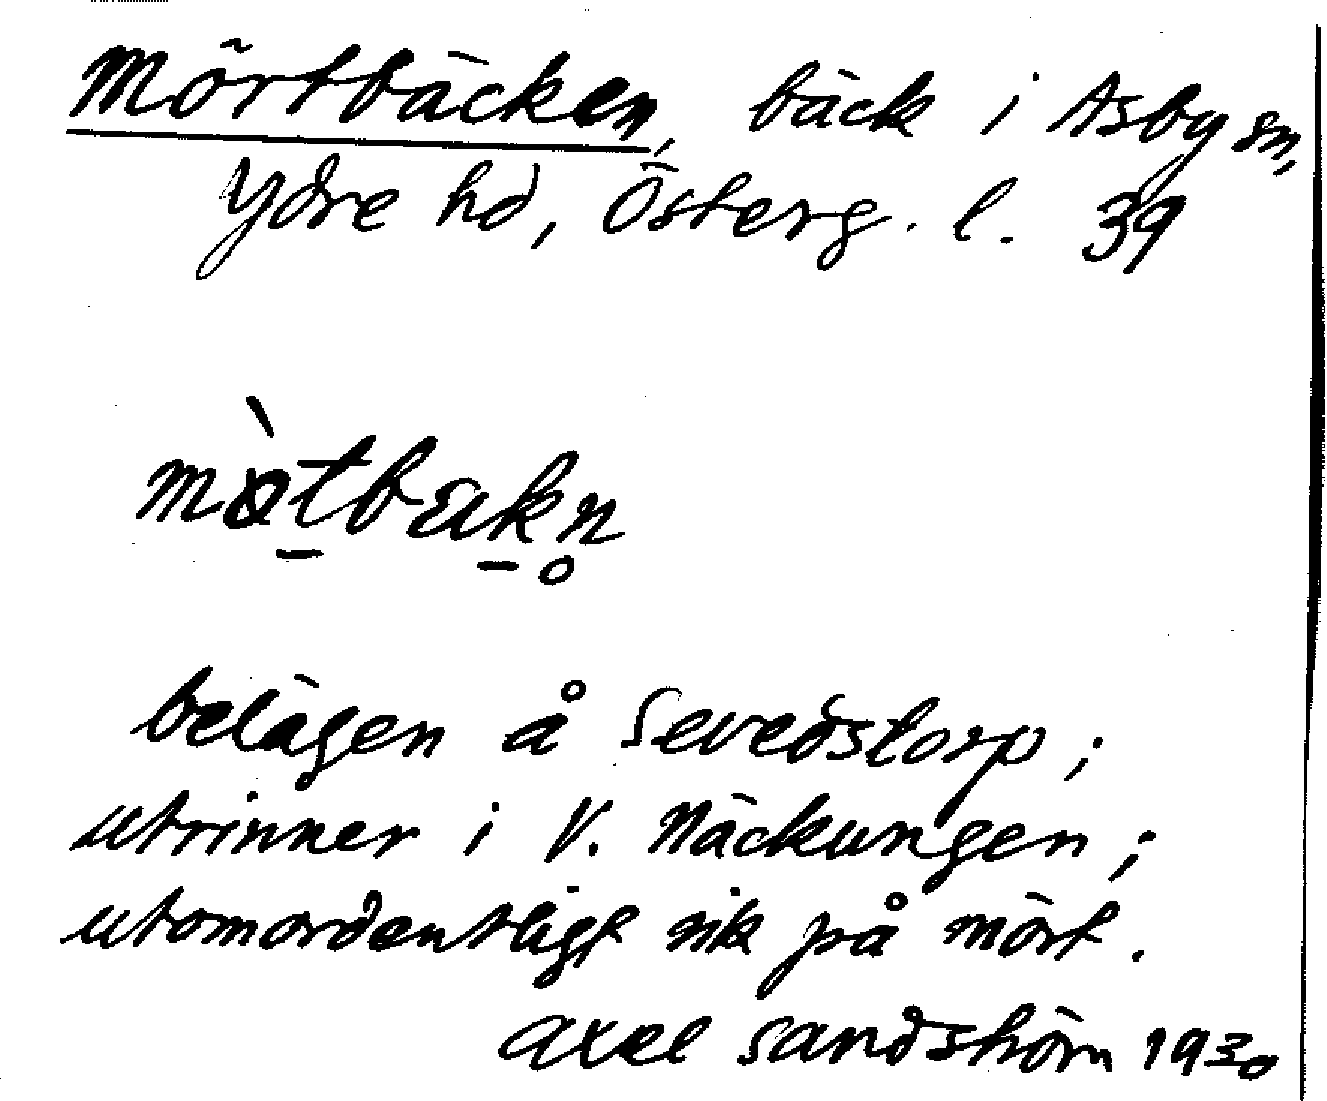 Mörtbäcken, bäck i Asby sn,
Ydre hd, Österg. l. 39
belägen å Sevedstorp;
utrinner i V. Näckungen;
utomordentligt rik på mört.
Axel Sandström 1930